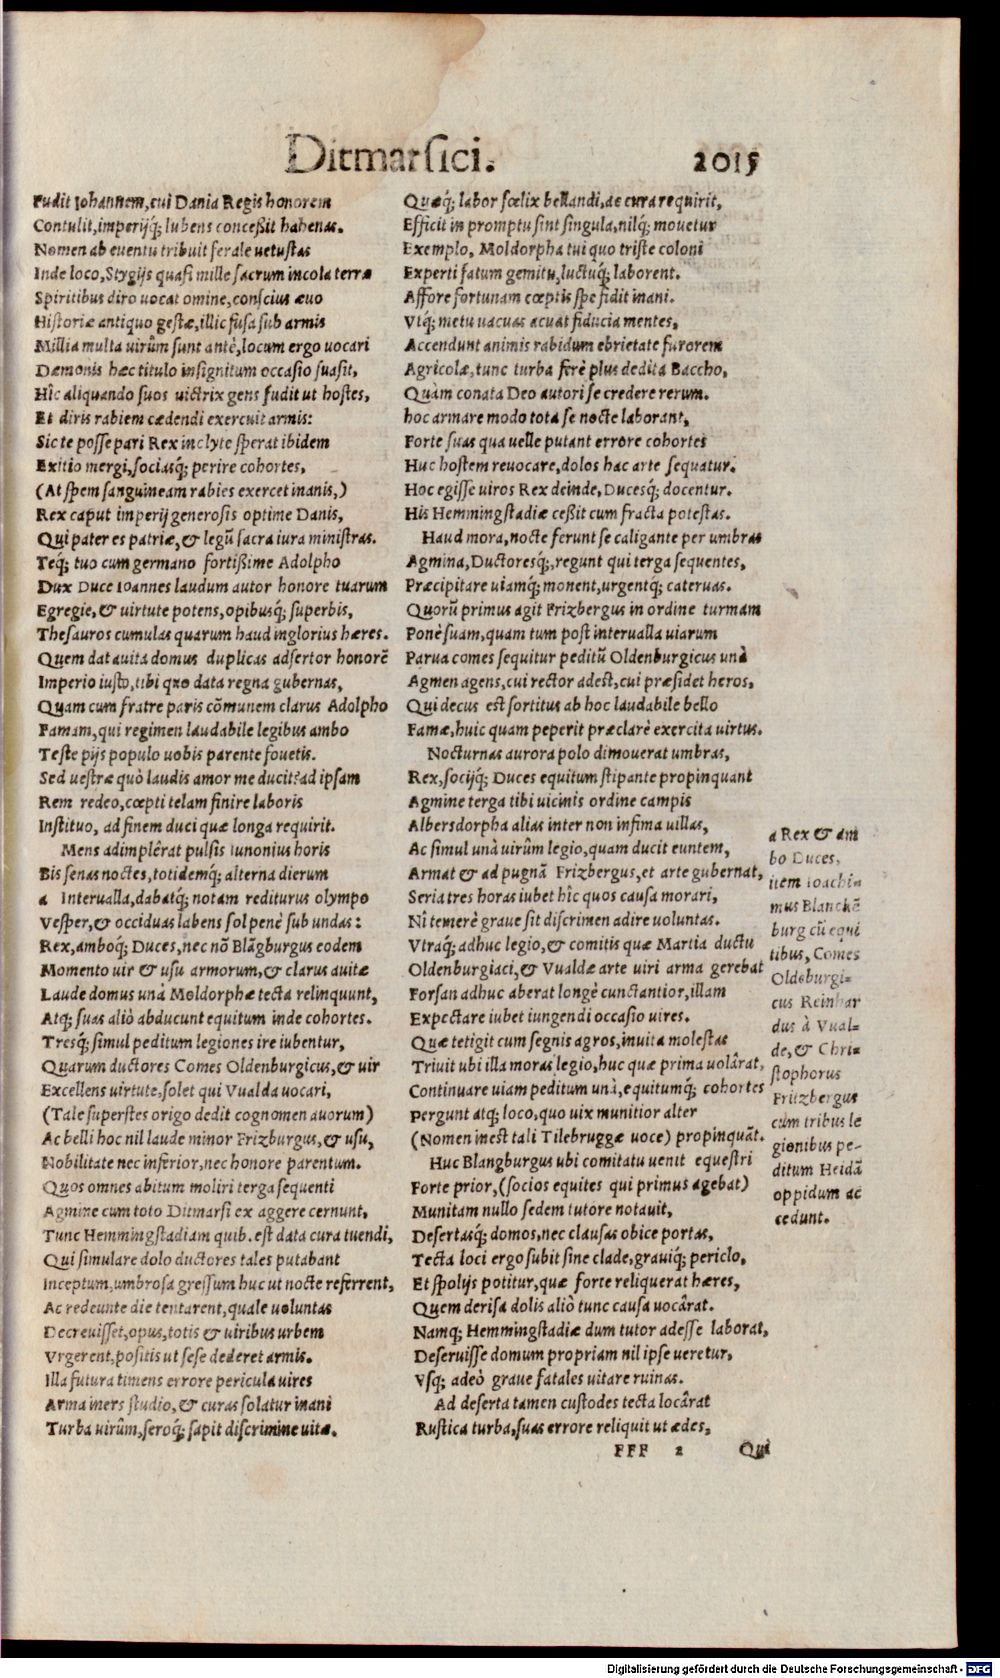 Ditmarsici. 2015
Fudit Iohannem, cui Dania Regis honorem
Contulit, imperijq́; lubens conceßit habenas.
Nomen ab euentu tribuit ferale uetustas
Inde loco, Stygijs quasi mille sacrum incola terræ
Spiritibus diro uocat omine, conscius æuo
Historiæ antiquo gestæ, illic fusa sub armis
Millia multa uirûm sunt antè, locum ergo uocari
Dæmonis hæc titulo insignitum occasio suasit,
Hîc aliquando suos uictrix gens fudit ut hostes,
Et diris rabiem cædendi exercuit armis:
Sic te posse pari Rex inclyte sperat ibidem
Exitio mergi, sociasq́; perire cohortes,
(At spem sanguineam rabies exercet inanis,)
Rex caput imperij generosis optime Danis,
Qui pater es patriæ, & legũ sacra iura ministras.
Teq́; tuo cum germano fortißime Adolpho
Dux Duce Ioannes laudum autor honore tuarum
Egregie, & uirtute potens, opibusq́; superbis,
Thesauros cumulas quarum haud inglorius hæres.
Quem dat auita domus duplicas adsertor honorẽ
Imperio iusto, tibi quo data regna gubernas,
Quam cum fratre paris cõmunem clarus Adolpho
Famam, qui regimen laudabile legibus ambo
Teste pijs populo uobis parente fouetis.
Sed uestræ quò laudis amor me ducit? ad ipsam
Rem redeo, cœpti telam finire laboris
Instituo, ad finem duci quæ longa requirit.
Mens adimplêrat pulsis Iunonius horis
Bis senas noctes, totidemq́; alterna dierum
a Interualla, dabatq́; notam rediturus olympo
Vesper, & occiduas labens sol penè sub undas:
Rex, amboq́; Duces, nec nõ Blãgburgus eodem
Momento uir & usu armorum, & clarus auitæ
Laude domus unà Moldorphæ tecta relinquunt,
Atq́; suas aliò abducunt equitum inde cohortes.
Tresq́; simul peditum legiones ire iubentur,
Quarum ductores Comes Oldenburgicus, & uir
Excellens uirtute, solet qui Vualda uocari,
(Tale superstes origo dedit cognomen auorum)
Ac belli hoc nil laude minor Frizburgus, & usu,
Nobilitate nec inferior, nec honore parentum.
Quos omnes abitum moliri terga sequenti
Agmine cum toto Ditmarsi ex aggere cernunt,
Tunc Hemmingstadiam quib. est data cura tuendi,
Qui simulare dolo ductores tales putabant
Inceptum, umbrosa gressum huc ut nocte referrent,
Ac redeunte die tentarent, quale uoluntas
Decreuisset, opus, totis & uiribus urbem
Vrgerent, positis ut sese dederet armis.
Illa futura timens errore pericula uires
Arma iners studio, & curas solatur inani
Turba uirûm, seroq́; sapit discrimine uitæ.
Quæq́; labor fœlix bellandi, ac cura requirit,
Efficit in promptu sint singula, nilq́; mouetur
Exemplo, Moldorpha tui quo triste coloni
Experti fatum gemitu, luctuq́; laborent.
Affore fortunam cœptis spe fidit inani.
Vtq́; metu uacuas acuat fiducia mentes,
Accendunt animis rabidum ebrietate furorem
Agricolæ, tunc turba ferè plus dedita Baccho,
Quàm conata Deo autori se credere rerum.
hoc armare modo tota se nocte laborant,
Forte suas qua uelle putant errore cohortes
Huc hostem reuocare, dolos hac arte sequatur.
Hoc egisse uiros Rex deinde, Ducesq́; docentur.
His Hemmingstadiæ ceßit cum fracta potestas.
Haud mora, nocte ferunt se caligante per umbras
Agmina, Ductoresq́;, regunt qui terga sequentes,
Præcipitare uiamq́; monent, urgentq́; cateruas.
Quorũ primus agit Frizbergus in ordine turmam
Ponè suam, quam tum post interualla uiarum
Parua comes sequitur peditũ Oldenburgicus unà
Agmen agens, cui rector adest, cui præsidet heros,
Qui decus est sortitus ab hoc laudabile bello
Famæ, huic quam peperit præclarè exercita uirtus.
Nocturnas aurora polo dimouerat umbras,
Rex, socijq́; Duces equitum stipante propinquant
Agmine terga tibi uicinis ordine campis
Albersdorpha alias inter non infima uillas,
Ac simul unà uirûm legio, quam ducit euntem,
Armat & ad pugnã Frizbergus, et arte gubernat,
Seria tres horas iubet hîc quos causa morari,
Nî temerè graue sit discrimen adire uoluntas.
Vtraq́; adhuc legio, & comitis quæ Martia ductu
Oldenburgiaci, & Vualdæ arte uiri arma gerebat
Forsan adhuc aberat longè cunctantior, illam
Expectare iubet iungendi occasio uires.
Quæ tetigit cum segnis agros, inuita molestas
Triuit ubi illa moras legio, huc quæ prima uolârat,
Continuare uiam peditum unà, equitumq́; cohortes
pergunt atq́; loco, quo uix munitior alter
(Nomen inest tali Tilebruggæ uoce) propinquãt.
Huc Blangburgus ubi comitatu uenit equestri
Forte prior, (socios equites qui primus agebat)
Munitam nullo sedem tutore notauit,
Desertasq́; domos, nec clausas obice portas,
Tecta loci ergo subit sine clade, grauiq́; periclo,
Et spolijs potitur, quæ forte reliquerat hæres,
Quem derisa dolis aliò tunc causa uocârat.
Namq́; Hemmingstadiæ dum tutor adesse laborat,
Deseruisse domum propriam nil ipse ueretur,
Vsq́; adeò graue fatales uitare ruinas.
Ad deserta tamen custodes tecta locârat
Rustica turba, suas errore reliquit ut ædes,
a Rex & am
bo Duces,
item Ioachi-
mus Blanckẽ
burg cũ equi
tibus, Comes
Oldẽburgi-
cus Reinhar
dus à Vual-
de, & Chri-
stophorus
Fritzbergus
cum tribus le
gionibus pe-
ditum Heidã
oppidum ac
cedunt.
FFF 2 Qui
Digitalisierung gefördert durch die Deutsche Forschungsgemeinschaft - DFG